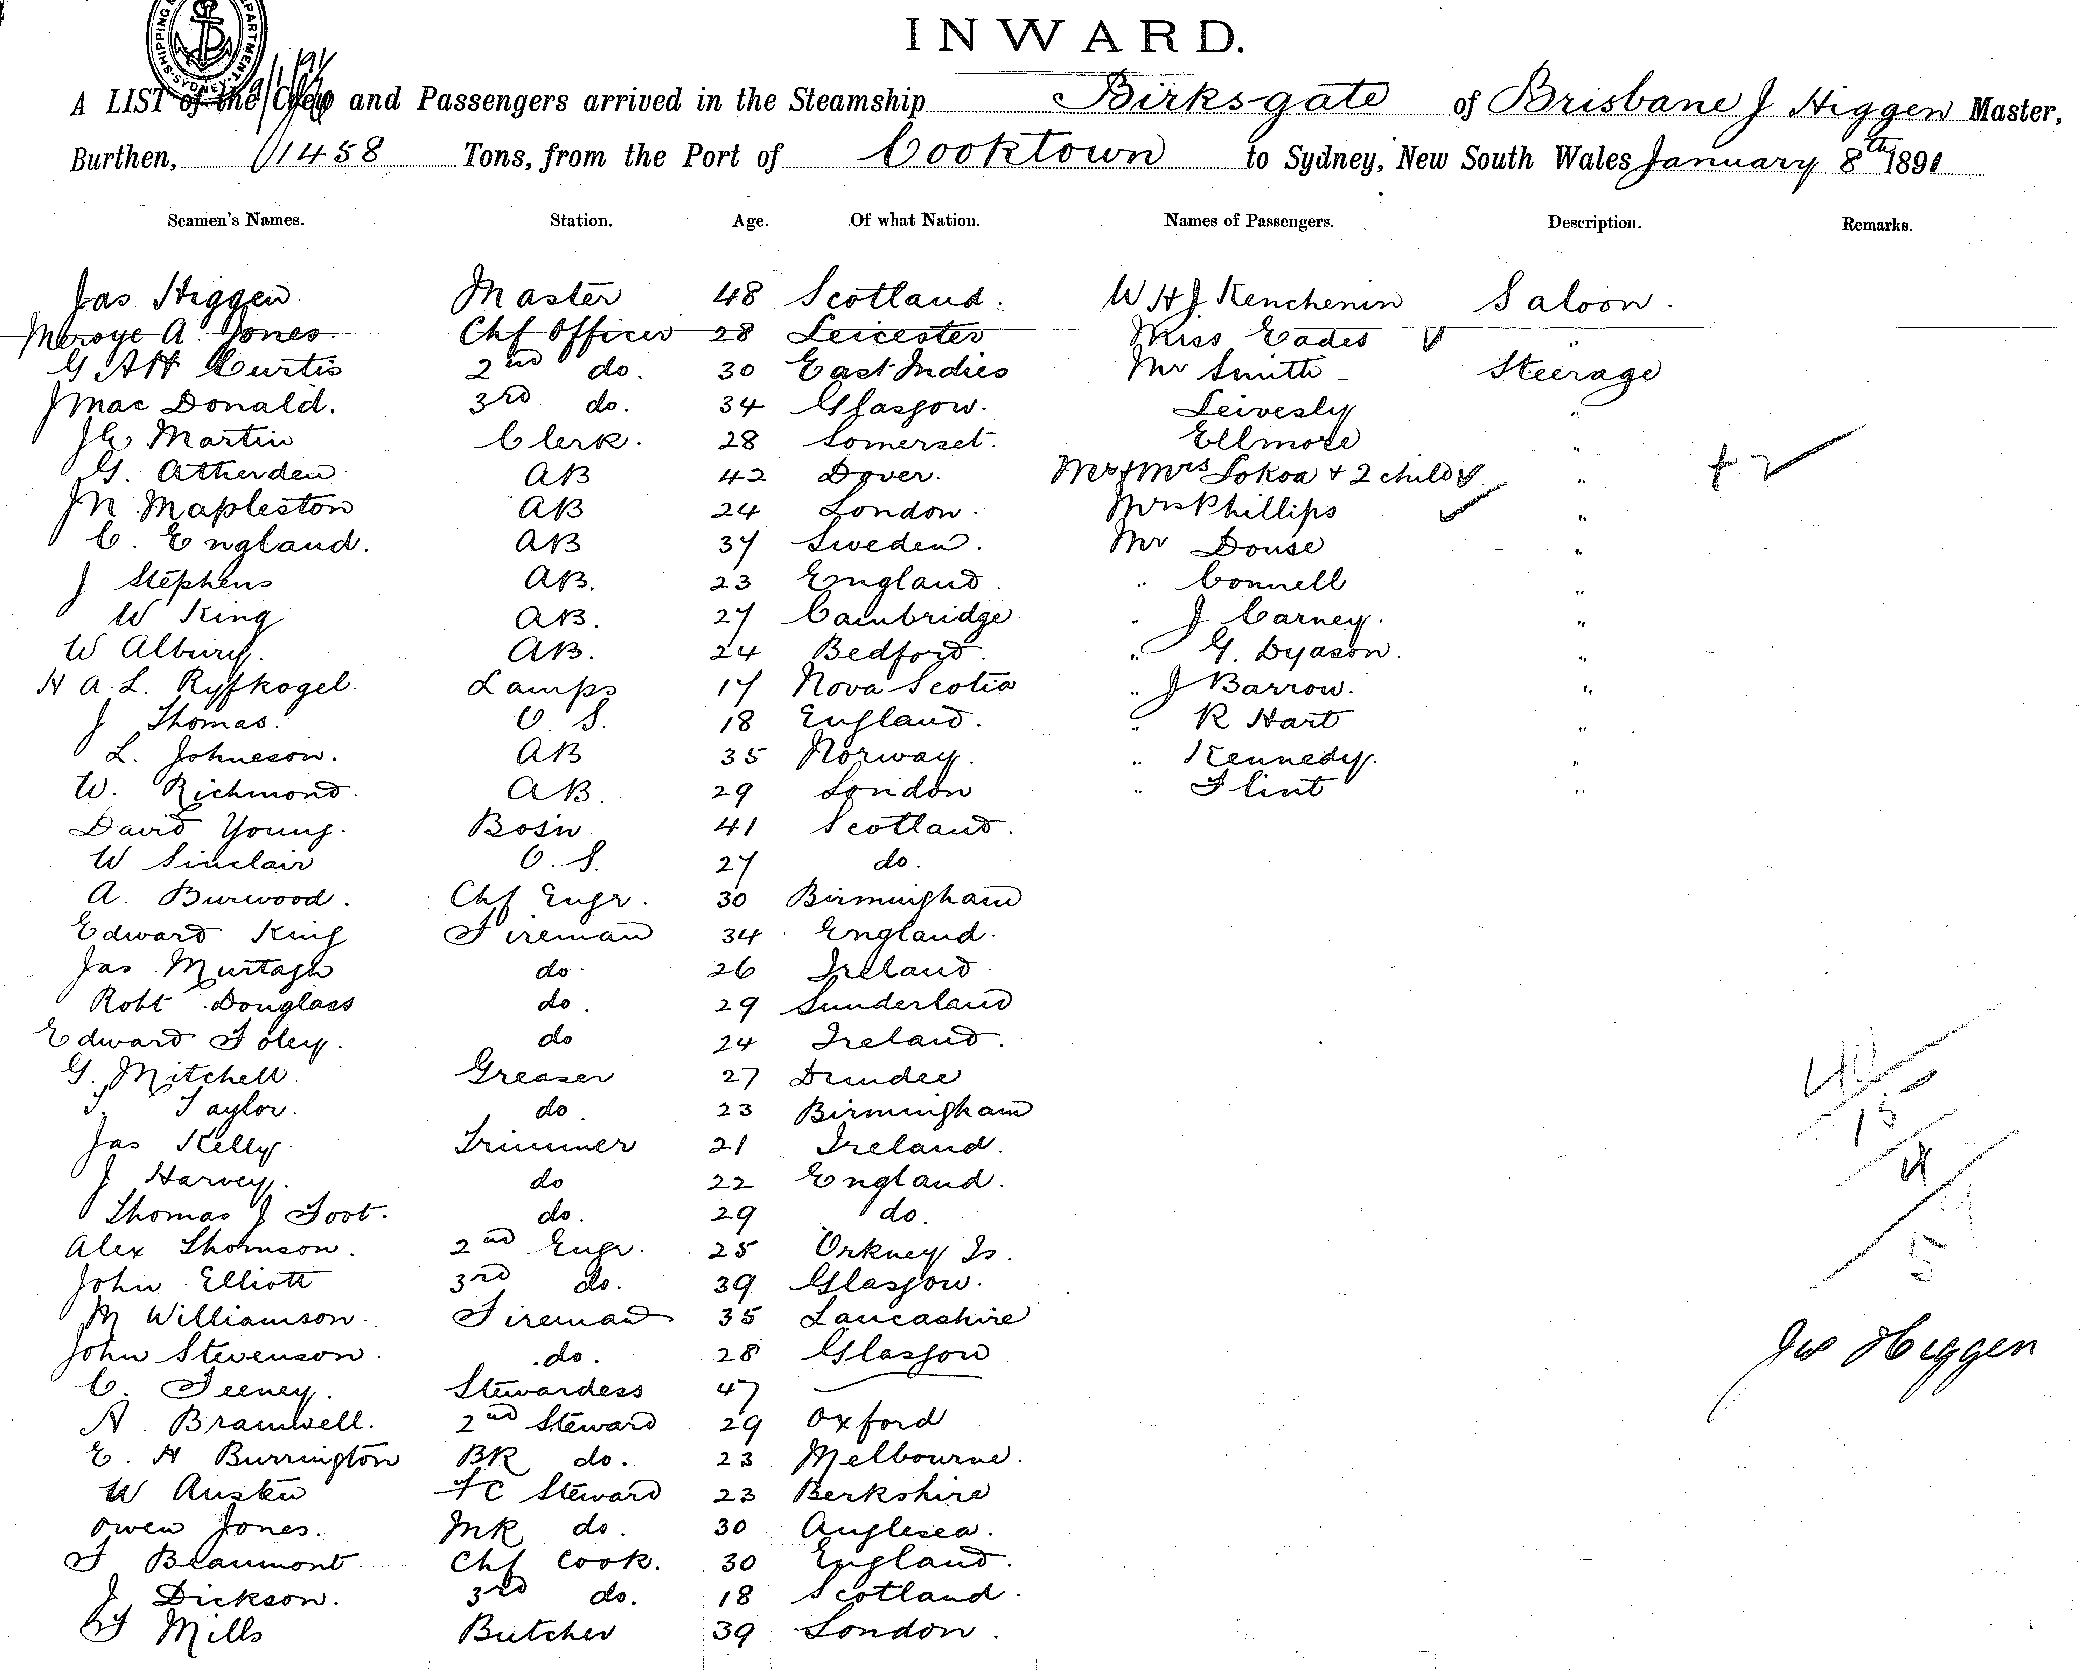 INWARD.
A LIST of the Crew and Passengers arrived in the Steamship Birksgate of Brisbane J Higgen Master,
Burthen, 1458 Tons, from the Port of Cooktown to Sydney, New South Wales January 8th 1891
Seamen's Names. Station. Age. Of what Nation. Names of Passengers. Description. Remarks.
Jas Higgen Master 48 Scotland. W H J Kenchenin Saloon.
A. Jones. Chf Officer 28 Leicester Miss Eades "
G A H Curtis 2nd do. 30 East Indies Mr Smith Steerage
J Mac Donald. 3rd do. 34 Glasgow. Leivesly "
J C Martin Clerk. 28 Somerset. Ellmore "
G. Atherden AB 42 Dover. Mr & Mrs Sokoa + 2 child "
M Mapleston AB 24 London. Mrs Phillips "
C. England. AB 37 Sweden. Mr Douse "
J Stephens AB. 23 England " Connell "
W King AB. 27 Cambridge " J Carney. "
W Albury. AB. 24 Bedford " G. Dyason. "
H A. L. Ryfkogel Lamps 17 Nova Scotia " J Barrow. "
J Thomas. O. S. 18 England. " R Hart "
L. Johneson. AB 35 Norway. " Kennedy. "
W. Richmond AB. 29 London " Flint "
David Young. Bosn 41 Scotland.
W Sinclair O. S. 27 do.
A. Burwood. Chf Engr. 30 Birmingham
Edward King Fireman 34 England.
Jas Murtagh do. 26 Ireland
Robt Douglass do. 29 Sunderland
Edward Foley. do 24 Ireland.
G. Mitchell. Greaser 27 Dundee
T. Taylor. do. 23 Birmingham
Jas Kelly Trimmer 21 Ireland.
J Harvey. do 22 England.
Thomas J Foot. do. 29 do.
Alex Thomson. 2nd Engr. 25 Orkney Is.
John Elliott 3rd do. 39 Glasgow.
M Williamson. Fireman 35 Lancashire
John Stevenson. do. 28 Glasgow
C. Feeney. Stewardess 47
A Bramwell. 2nd Steward 29 Oxford
E. H Burrington BR do. 23 Melbourne.
W Austen FC Steward 23 Berkshire
Owen Jones. MR do. 30 Anglesea.
F Beaumont Chf Cook. 30 England.
J Dickson. 3rd do. 18 Scotland.
Mills Butcher 39 London.
Jas Higgen